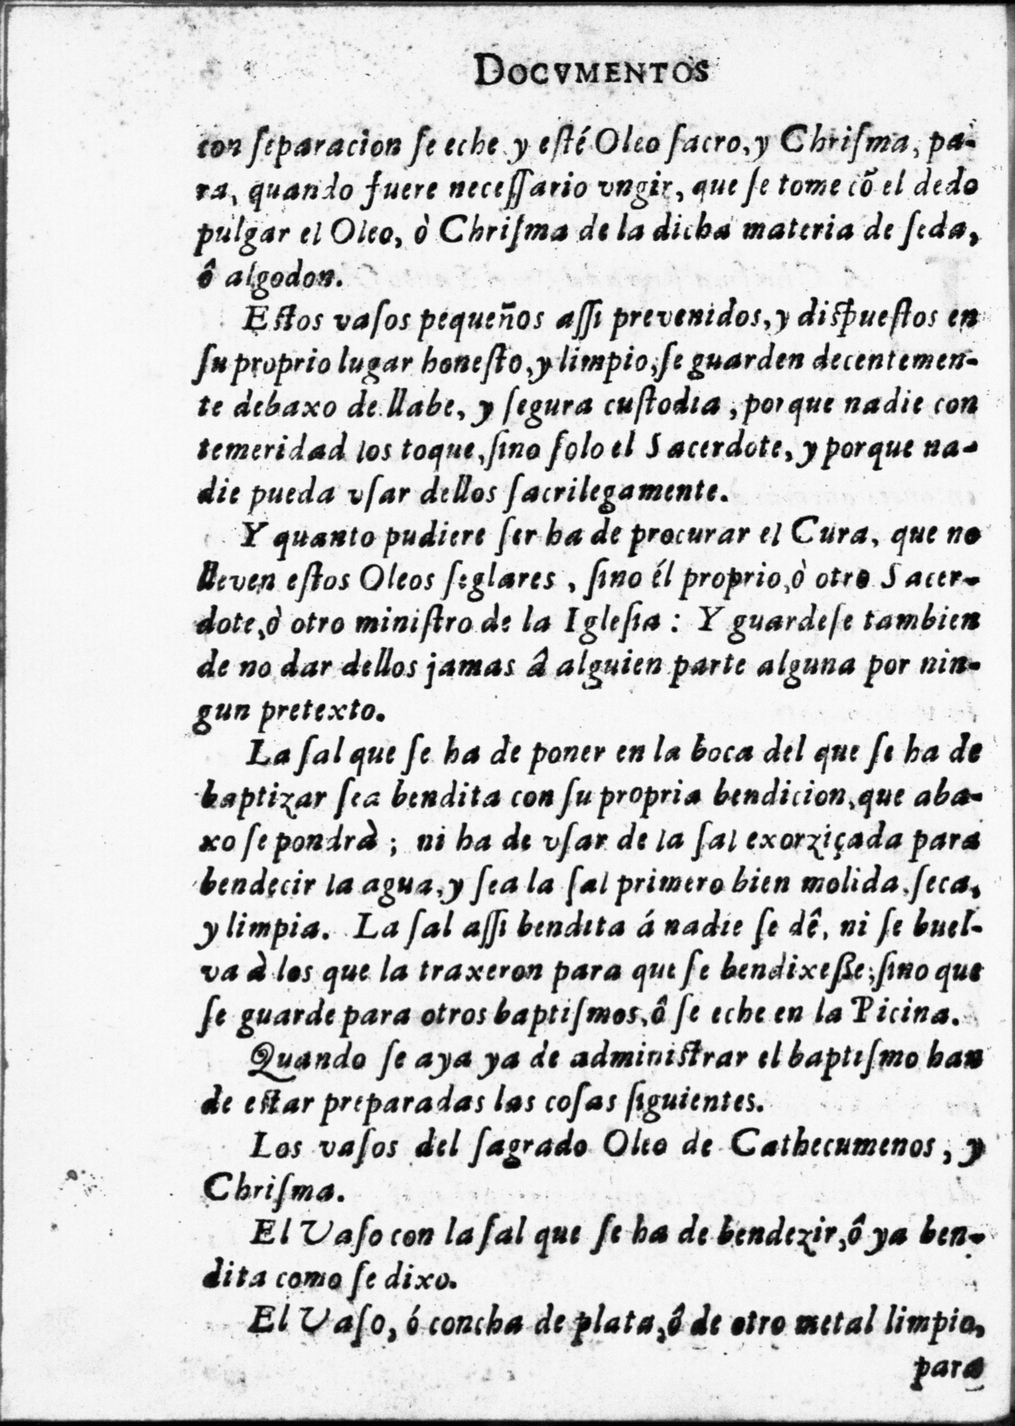 DOCVMENTOS
con ſeparacion ſe eche y eſté Oleo ſacro, y Chriſma, pa-
ra, quando fuere neceſſario vngir, que ſe tome cõ el dedo
pulgar el Oleo, ò Chriſma de la dicha materia de ſeda,
ô algodon.
Eſtos vaſos pequeños aſſi prevenidos, y diſpueſtos en
ſu proprio lugar honeſto, y limpio, ſe guarden decentemen-
te debaxo de llabe, y ſegura cuſtodia, porque nadie con
temeridad los toque, ſino ſolo el Sacerdote, y porque na-
die pueda vſar dellos ſacrilegamente.
Y quanto pudiere ſer ha de procurar el Cura, que no
lleven eſtos Oleos ſeglares, ſino él proprio, ò otro Sacer-
dote, ò otro miniſtro de la Igleſia: Y guardeſe tambien
de no dar dellos jamas â alguien parte alguna por nin-
gun pretexto.
La ſal que ſe ha de poner en la boca del que ſe ha de
baptizar ſea bendita con ſu propria bendicion, que aba-
xo ſe pondrà; ni ha de vſar de la ſal exorziçada para
bendecir la agua, y ſea la ſal primero bien molida, ſeca,
y limpia. La ſal aſſi bendita á nadie ſe dê, ni ſe buel-
va à los que la traxeron para que ſe bendixeſſe; ſino que
ſe guarde para otros baptiſmos, ô ſe eche en la Picina.
Quando ſe aya ya de adminiſtrar el baptiſmo han
de eſtar preparadas las coſas ſiguientes.
Los vaſos del ſagrado Oleo de Cathecumenos, y
Chriſma.
El Vaſo con la ſal que ſe ha de bendezir, ô ya ben-
dita como ſe dixo.
El Vaſo, ó concha de plata, ô de otro metal limpio,
para